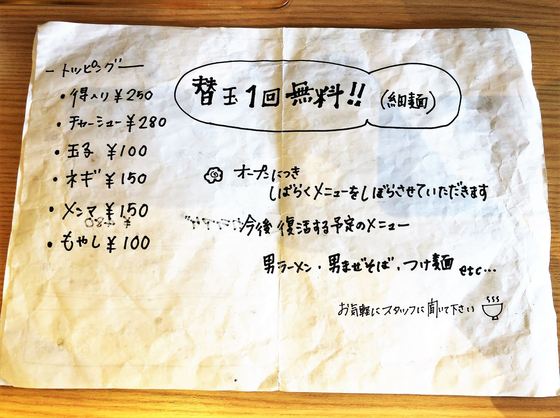 ートッピングー
・得入り ¥250
・チャーシュー ¥280
・玉子 ¥100
・ネギ ¥150
・メンマ ¥150
・もやし ¥100
替玉1回無料!! (細麺)
オープンにつき
しばらくメニューをしぼらさせていただきます
今後復活する予定のメニュー
男ラーメン・男まぜそば、つけ麺 etc…
お気軽にスタッフに聞いて下さい